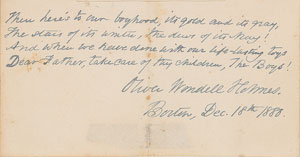 Then here's to our boyhood, its gold and its gray,
The stars of its winter, the dews of its May!
And when we have done with our life-lasting toys
Dear Father, take care of thy children, The Boys!
Oliver Wendell Holmes.
Boston, Dec. 18th 1880.